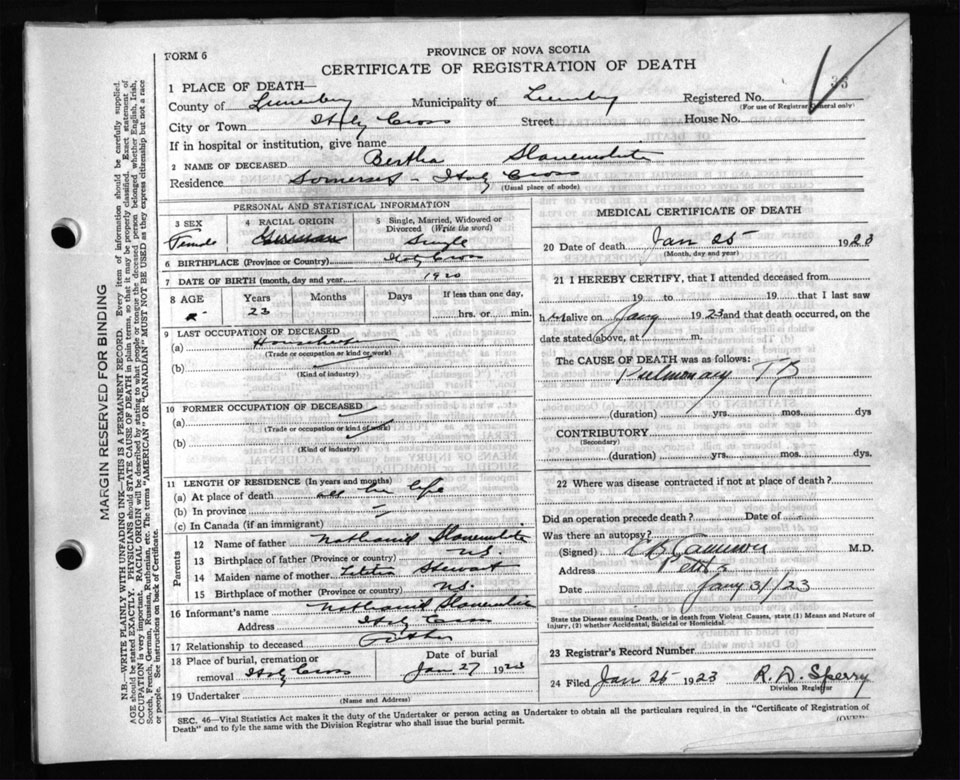 FORM 6
PROVINCE OF NOVA SCOTIA
CERTIFICATE OF REGISTRATION OF DEATH
1 PLACE OF DEATH—
County of Lunenburg Municipality of Registered No. 33
(For use of Registrar General only)
City or Town Italy Cross Street House No.
If in hospital or institution, give name
2 NAME OF DECEASED Bertha
Residence Somerset - Italy Cross
(Usual place of abode)
PERSONAL AND STATISTICAL INFORMATION
3 SEX Female
4 RACIAL ORIGIN German
5 Single, Married, Widowed or Divorced (Write the word) Single
6 BIRTHPLACE (Province or Country) Italy Cross
7 DATE OF BIRTH (month, day and year) 1920
8 AGE Years Months Days If less than one day,
23 hrs. or min.
9 LAST OCCUPATION OF DECEASED
(a) Housekeeper
(Trade or occupation or kind or work)
(b)
(Kind of industry)
10 FORMER OCCUPATION OF DECEASED
(a)
(Trade or occupation or kind of work)
(b)
(Kind of industry)
11 LENGTH OF RESIDENCE (In years and months)
(a) At place of death all her life
(b) In province
(c) In Canada (if an immigrant)
Parents
12 Name of father Nathaniel
13 Birthplace of father (Province or country) N.S.
14 Maiden name of mother Stewart
15 Birthplace of mother (Province or country) N.S.
16 Informant's name Nathaniel
Address Italy Cross
17 Relationship to deceased Father
18 Place of burial, cremation or removal Italy Cross
Date of burial
Jan 27 1923
19 Undertaker
(Name and Address)
MEDICAL CERTIFICATE OF DEATH
20 Date of death Jan 25 1923
(Month, day and year)
21 I HEREBY CERTIFY, that I attended deceased from
19 to 19 that I last saw
h er alive on Jany 1923 and that death occurred, on
date stated above, at m.
The CAUSE OF DEATH was as follows:
Pulmonary TB
(duration) yrs. mos. dys
CONTRIBUTORY
(Secondary)
(duration) yrs. mos. dys.
22 Where was disease contracted if not at place of death?
Did an operation precede death? Date of
Was there an autopsy?
(Signed) Cameron M.D.
Address
Date Jany 31/23
State the Disease causing Death, or in death from Violent Causes, state (1) Means and Nature of Injury, (2) whether Accidental, Suicidal or Homicidal.
23 Registrar's Record Number
24 Filed Jan 26 1923 R. D. Sperry
Division Registrar
SEC. 46—Vital Statistics Act makes it the duty of the Undertaker or person acting as Undertaker to obtain all the particulars required in the "Certificate of Registration of
Death" and to fyle the same with the Division Registrar who shall issue the burial permit.
(OVER)
MARGIN RESERVED FOR BINDING
N.B.—WRITE PLAINLY WITH UNFADING INK—THIS IS A PERMANENT RECORD. Every item of information should be carefully supplied.
AGE should be stated EXACTLY. PHYSICIANS should STATE CAUSE OF DEATH in plain terms, so that it may be properly classified. Exact statement of
OCCUPATION is very important. RACIAL ORIGIN will be described by stating to what people or tongue the deceased person belonged whether English, Irish,
Scotch, French, German, Russian, Ruthenian, etc. The terms "AMERICAN" OR "CANADIAN" MUST NOT BE USED as they express citizenship but not a race
or people. See instructions on back of Certificate.